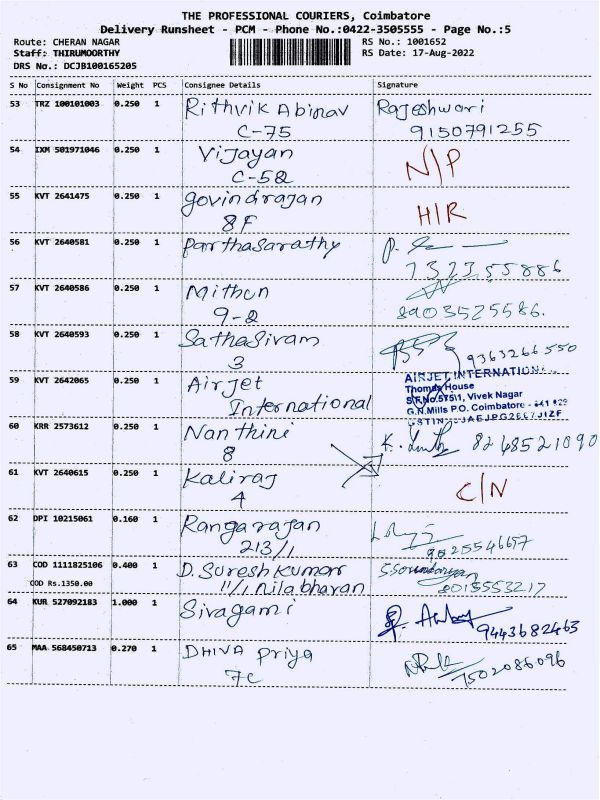 THE PROFESSIONAL COURIERS, Coimbatore
Delivery Runsheet - PCM - Phone No.:0422-3505555 - Page No.:5
Route: CHERAN NAGAR RS No.: 1001652
Staff: THIRUMOORTHY RS Date: 17-Aug-2022
DRS No.: DCJB100165205
S No Consignment No Weight PCS Consignee Details Signature
53 TRZ 100101003 0.250 1 Rithvik Abinav Rajeshwari
C-75 9150791255
54 IXM 501971046 0.250 1 Vijayan N/P
C-52
55 KVT 2641475 0.250 1 govindrajan H/R
8F
56 KVT 2640581 0.250 1 parthasarathy P.
7323 55886
57 KVT 2640586 0.250 1 Mithun
9-2 8903525586.
58 KVT 2640593 0.250 1 Sathasivam
3 9363266550
59 KVT 2642065 0.250 1 Airjet AIRJET INTERNATIONAL
International Thomas House
S.F.No.575/1, Vivek Nagar
G.N.Mills P.O. Coimbatore - 641 029
60 KRR 2573612 0.250 1 Nanthini K. 8248521090
8
61 KVT 2640615 0.250 1 Kaliraj C/N
4
62 DPI 10215061 0.160 1 Rangarajan
213/1 9025546657
63 COD 1111825106 0.400 1 D. Suresh kumar S.Soundaryan
COD Rs.1350.00 11/1, nila bharan 8015553217
64 KUR 527092183 1.000 1 Sivagami
9443682463
65 MAA 568450713 0.270 1 DHIVA Priya
7C 7502086096